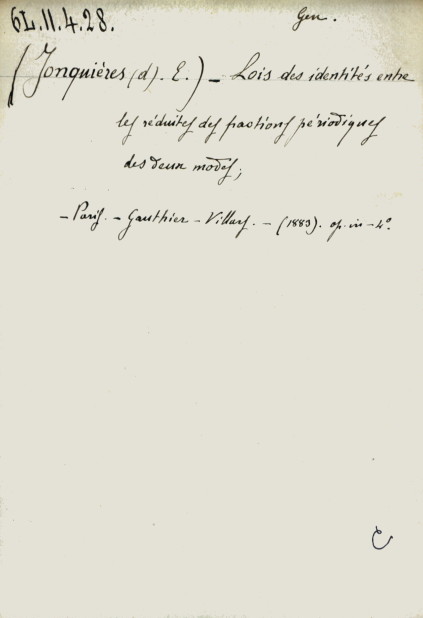 6L.11.4.28.
Gen.
(Jonquières (d). E.) – Lois des identités entre
les réduites des fractions périodiques
des deux modes;
– Paris. – Gauthier – Villars. – (1883). op. in – 4°.